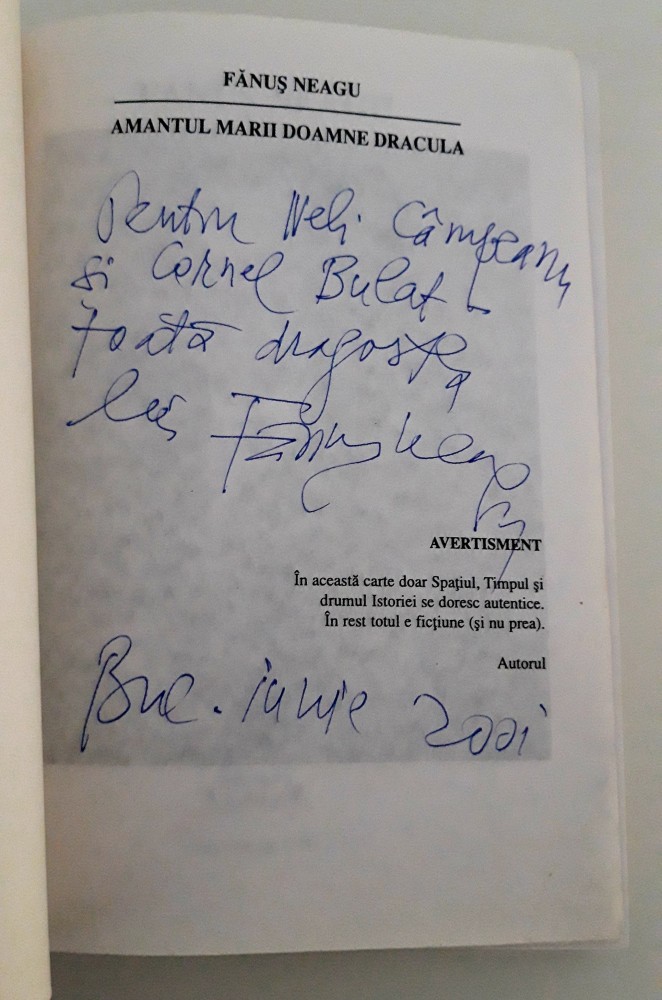 FĂNUȘ NEAGU
AMANTUL MARII DOAMNE DRACULA
Pentru Neli Câmpeanu
și Cornel Bulat –
toată dragostea
lui Fănuș Neagu
AVERTISMENT
În această carte doar Spațiul, Timpul și
drumul Istoriei se doresc autentice.
În rest totul e ficțiune (și nu prea).
Autorul
Buc. iunie 2001